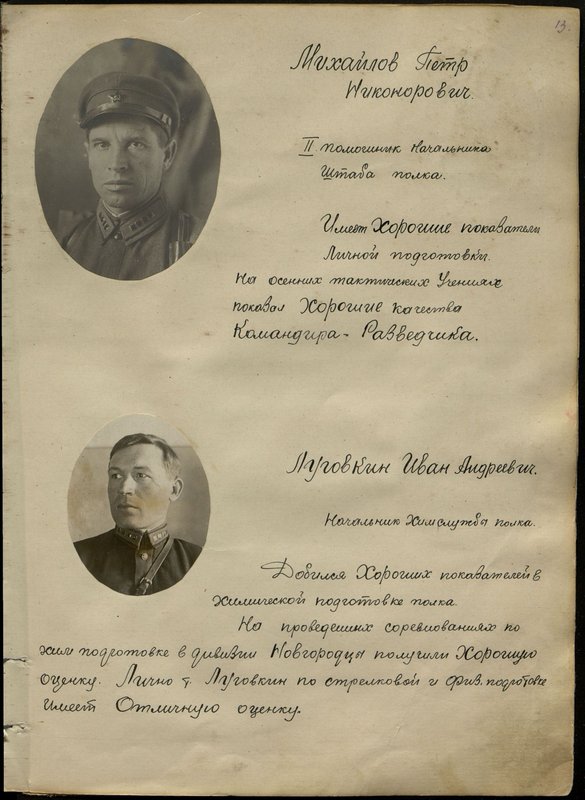 13.
Михайлов Петр
Никонорович.
II помошник Начальника
Штаба полка.
Имеет Хорошие показатели
Личной подготовки.
На осенних тактических Учениях
показал Хорошие качества
Командира-Разведчика.
Луговкин Иван Андреевич.
Начальник Химслужбы полка.
Добился Хороших показателей в
химической подготовке полка.
На проведенных соревнованиях по
хим подготовке в дивизии Новгородцы получили Хорошую
оценку. Лично т. Луговкин по стрелковой и физ. подготовке
Имеет Отличную оценку.